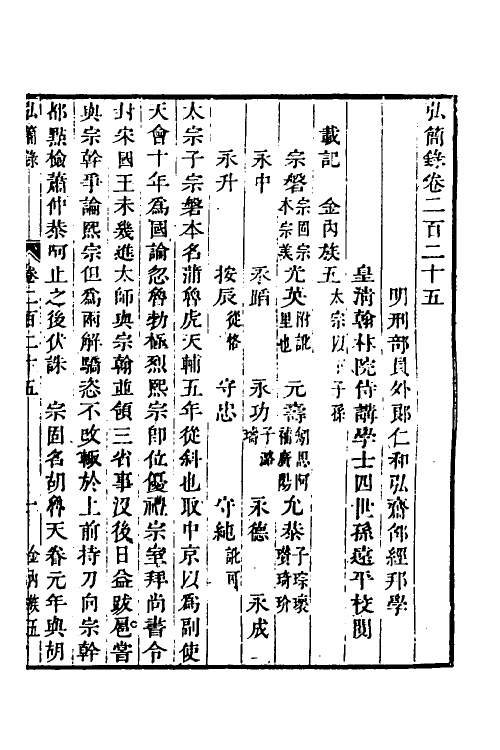 弘簡錄卷二百二十五
明刑部員外郎仁和弘齋邵經邦學
皇清翰林院侍講學士四世孫遠平校閱
載記 金內族五 太宗以下子孫
宗磐 宗固宗本宗義 光英 附說里也 元壽 胡思阿補廣陽 允恭 子琮瓌瓚琦玠
永中 永蹈 永功 子璹璐 永德 永成
永升 按辰 從恪 守忠 守純 訛可
太宗子宗磐本名蒲魯虎天輔五年從斜也取中京以爲副使
天會十年爲國論忽魯勃極烈熙宗卽位優禮宗室拜尚書令
封宋國王未幾進太師與宗幹並領三省事沒後日益跋扈嘗
與宗幹爭論熙宗但爲兩解驕恣不改輒於上前持刀向宗幹
都點檢蕭仲恭呵止之後伏誅 宗固名胡魯天眷元年與胡
弘簡錄 卷二百二十五 一 金內族五